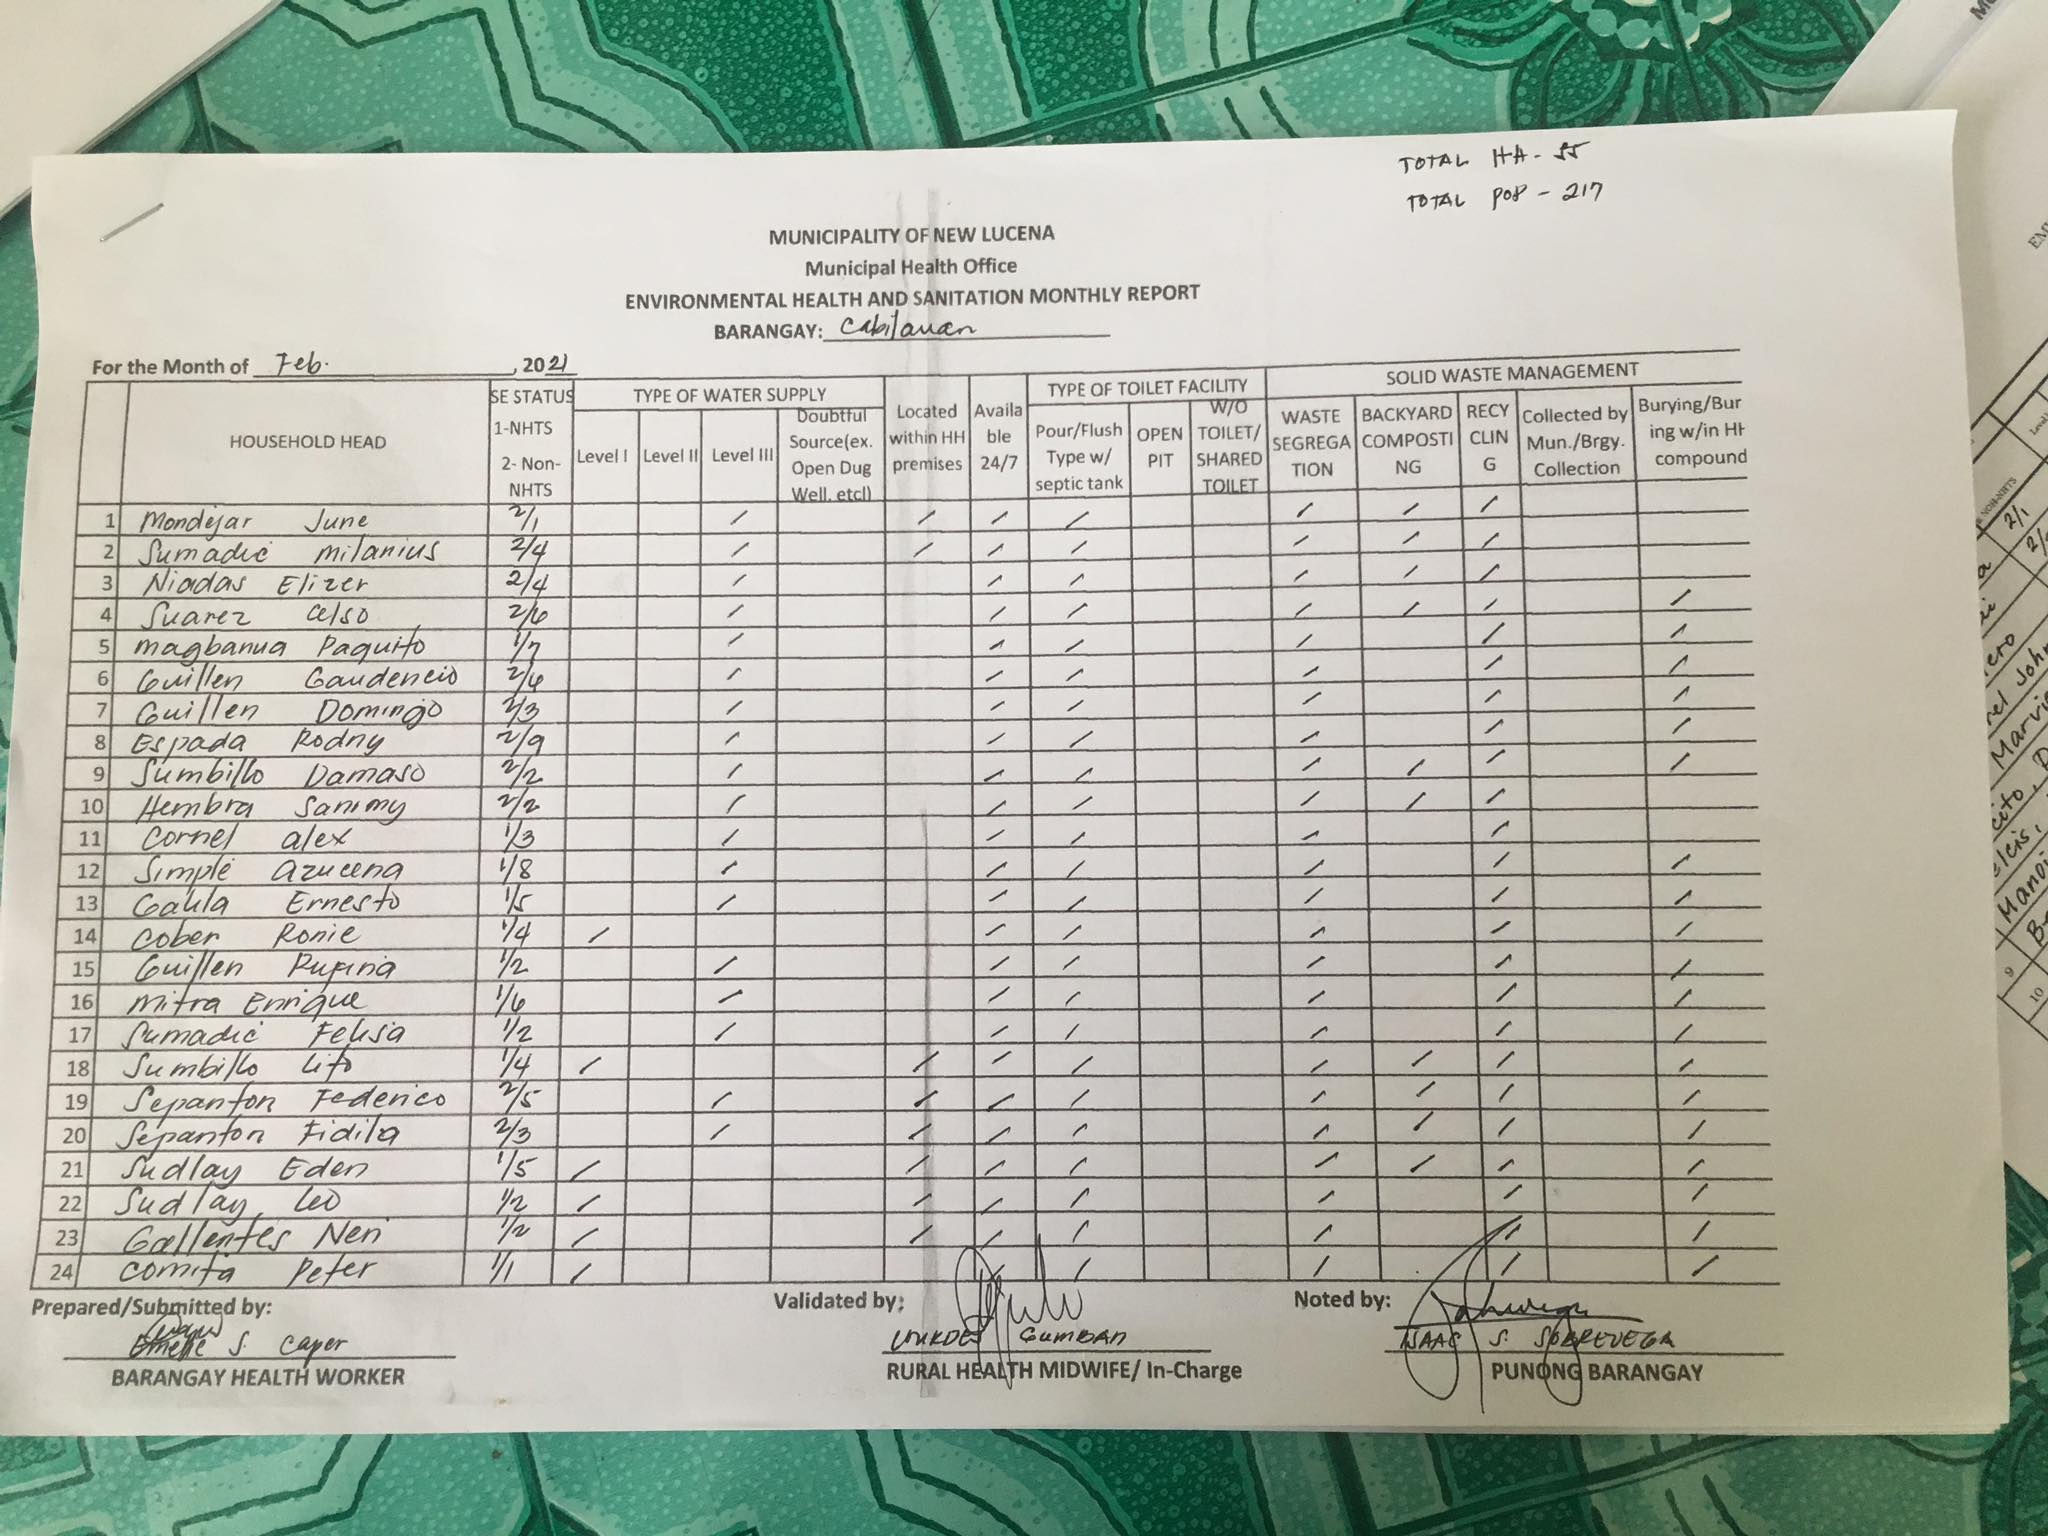 TOTAL HH - 55
TOTAL POP - 217
MUNICIPALITY OF NEW LUCENA
Municipal Health Office
ENVIRONMENTAL HEALTH AND SANITATION MONTHLY REPORT
BARANGAY: Cabilauan
For the Month of Feb. , 2021
HOUSEHOLD HEAD
SE STATUS
1-NHTS
2- Non-
NHTS
TYPE OF WATER SUPPLY
Level I
Level II
Level III
Doubtful
Source(ex.
Open Dug
Well. etcl)
Located
within HH
premises
Availa
ble
24/7
TYPE OF TOILET FACILITY
Pour/Flush
Type w/
septic tank
OPEN
PIT
W/O
TOILET/
SHARED
TOILET
SOLID WASTE MANAGEMENT
WASTE
SEGREGA
TION
BACKYARD
COMPOSTI
NG
RECY
CLIN
G
Collected by
Mun./Brgy.
Collection
Burying/Bur
ing w/in HH
compound
1 Mondejar June 2/1 / / / / / / /
2 Sumadic Milanius 2/4 / / / / / / /
3 Niadas Elizer 2/4 / / / / / /
4 Suarez Celso 2/6 / / / / / / /
5 Magbanua Paquito 1/7 / / / / / /
6 Guillen Gaudencio 2/6 / / / / / /
7 Guillen Domingo 2/3 / / / / / /
8 Espada Rodny 2/9 / / / / / /
9 Sumbillo Damaso 2/2 / / / / / / /
10 Hembra Sammy 2/2 / / / / / /
11 Cornel Alex 1/3 / / / / /
12 Simple Azucena 1/8 / / / / / /
13 Ernesto 1/5 / / / / / /
14 Cober Ronie 1/4 / / / / / /
15 Guillen Rufina 1/2 / / / / / /
16 Mitra Enrique 1/6 / / / / / /
17 Sumadic Felisa 1/2 / / / / / /
18 Sumbillo Lito 1/4 / / / / / / / /
19 Sepanton Federico 2/5 / / / / / / / /
20 Sepanton Fidila 2/3 / / / / / / / /
21 Sudlay Eden 1/5 / / / / / / / /
22 Sudlay, Leo 1/2 / / / / / / /
23 Gallentes Neri 1/2 / / / / / / /
24 Comita Peter 1/1 / / / / / /
Prepared/Submitted by:
S. Caper
BARANGAY HEALTH WORKER
Validated by:
LOURDES GUMBAN
RURAL HEALTH MIDWIFE/ In-Charge
Noted by:
ISAAC S. SOBREVEGA
PUNONG BARANGAY